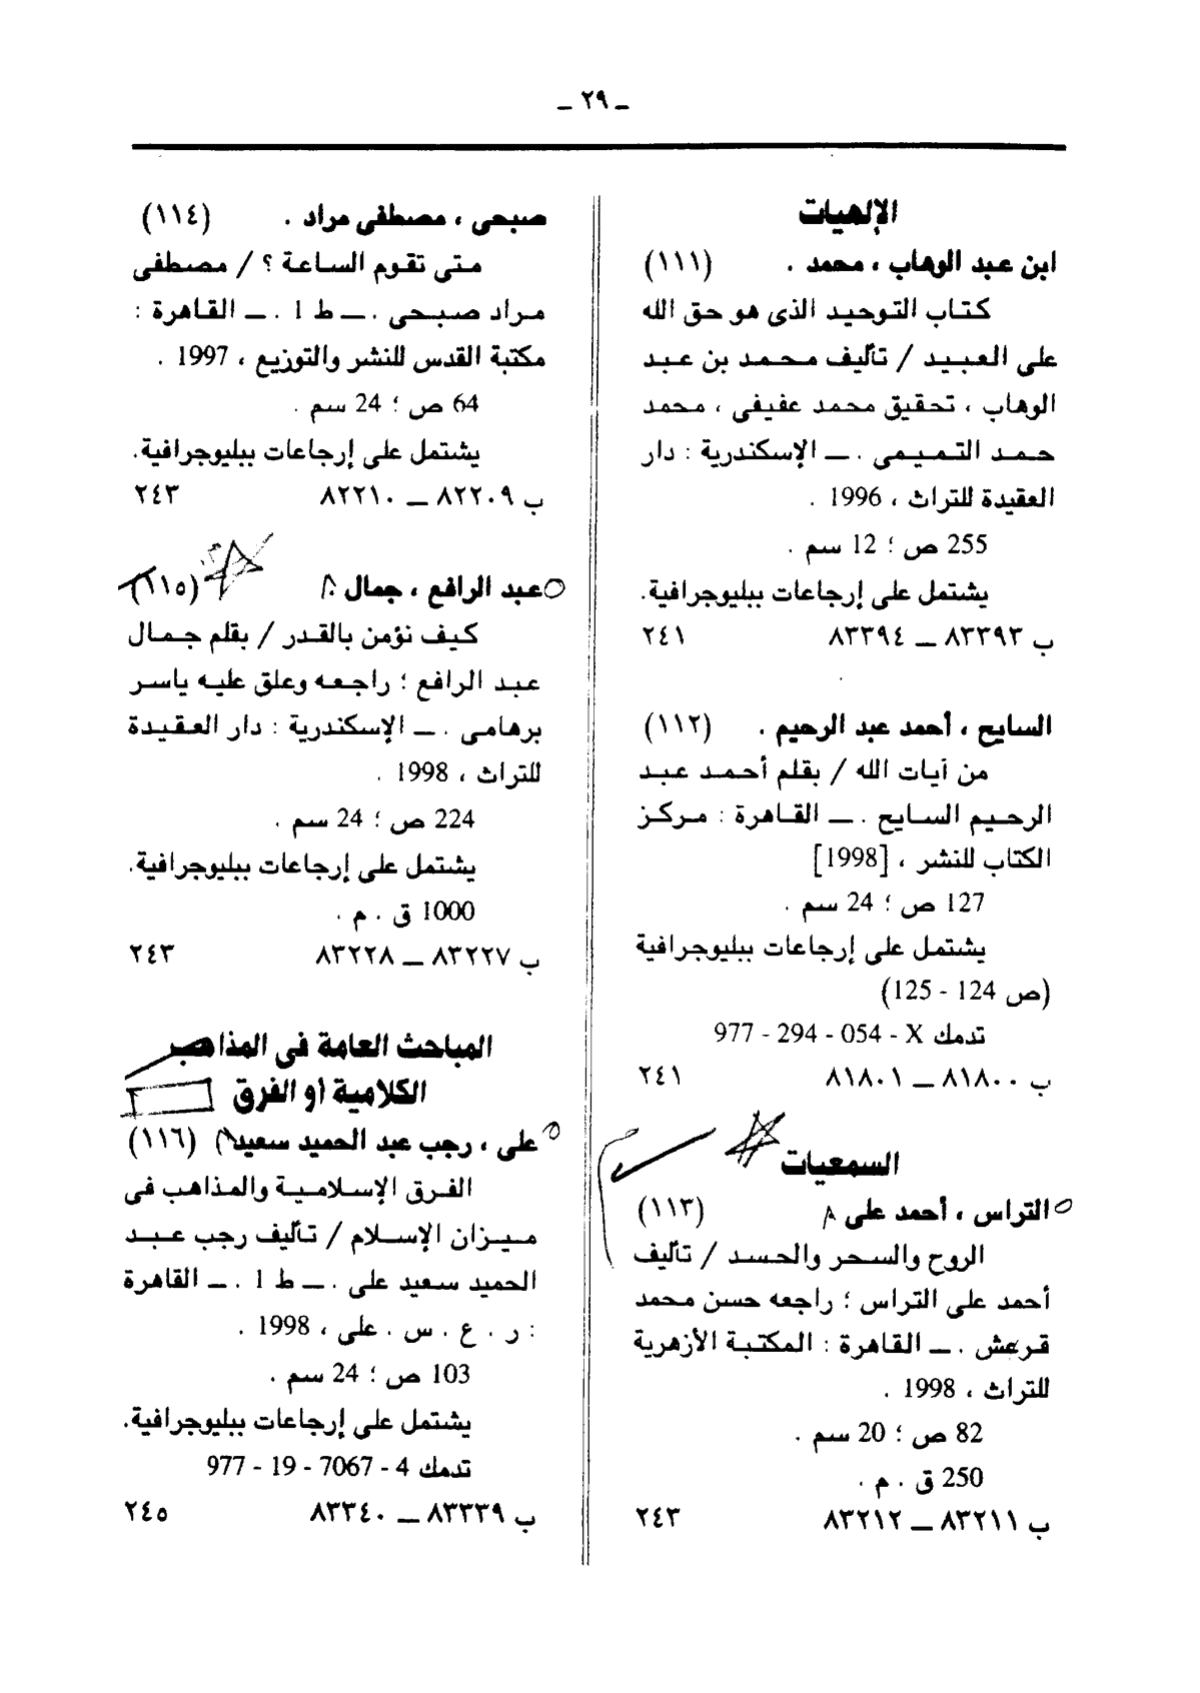 ـ ٢٩ ـ
الإلهيات
ابن عبد الوهاب ، محمد . (١١١)
كتاب التوحيد الذى هو حق الله
على العبيد / تأليف محمد بن عبد
الوهاب ، تحقيق محمد عفيفى ، محمد
حمد التميمى . ـ الإسكندرية : دار
العقيدة للتراث ، 1996 .
255 ص ؛ 12 سم .
يشتمل على إرجاعات ببليوجرافية.
ب ٨٣٣٩٣ ـ ٨٣٣٩٤ ٢٤١
السايح ، أحمد عبد الرحيم . (١١٢)
من آيات الله / بقلم أحمد عبد
الرحيم السايح . ـ القاهرة : مركز
الكتاب للنشر ، [1998]
127 ص ؛ 24 سم .
يشتمل على إرجاعات ببليوجرافية
(ص 124 - 125)
تدمك 977 - 294 - 054 - X
ب ٨١٨٠٠ ـ ٨١٨٠١ ٢٤١
السمعيات
التراس ، أحمد على (١١٣)
الروح والسحر والحسد / تأليف
أحمد على التراس ؛ راجعه حسن محمد
قرعش . ـ القاهرة : المكتبة الأزهرية
للتراث ، 1998 .
82 ص ؛ 20 سم .
250 ق . م .
ب ٨٣٢١١ ـ ٨٣٢١٢ ٢٤٣
صبحى ، مصطفى مراد . (١١٤)
متى تقوم الساعة ؟ / مصطفى
مراد صبحى . ـ ط ١ . ـ القاهرة :
مكتبة القدس للنشر والتوزيع ، 1997 .
64 ص ؛ 24 سم .
يشتمل على إرجاعات ببليوجرافية.
ب ٨٢٢٠٩ ـ ٨٢٢١٠ ٢٤٣
عبد الرافع ، جمال (١١٥)
كيف نؤمن بالقدر / بقلم جمال
عبد الرافع ؛ راجعه وعلق عليه ياسر
برهامى . ـ الإسكندرية : دار العقيدة
للتراث ، 1998 .
224 ص ؛ 24 سم .
يشتمل على إرجاعات ببليوجرافية.
1000 ق . م .
ب ٨٣٢٢٧ ـ ٨٣٢٢٨ ٢٤٣
المباحث العامة فى المذاهب
الكلامية أو الفرق
على ، رجب عبد الحميد سعيد (١١٦)
الفرق الإسلامية والمذاهب فى
ميزان الإسلام / تأليف رجب عبد
الحميد سعيد على . ـ ط ١ . ـ القاهرة
: ر . ع . س . على ، 1998 .
103 ص ؛ 24 سم .
يشتمل على إرجاعات ببليوجرافية.
تدمك 977 - 19 - 7067 - 4
ب ٨٣٣٣٩ ـ ٨٣٣٤٠ ٢٤٥